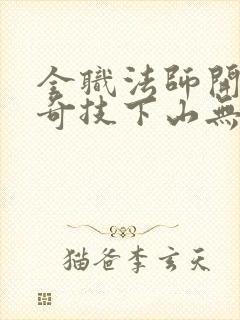 全職法師開
奇技下山無
猫爸李玄天